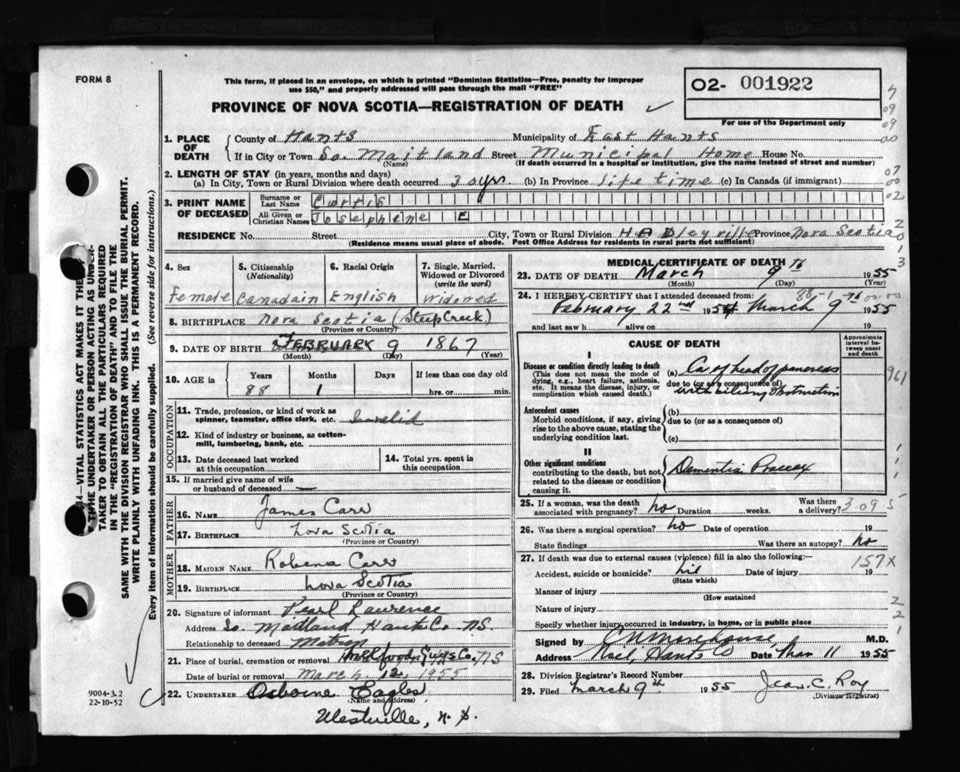 FORM 8
This form, if placed in an envelope, on which is printed "Dominion Statistics—Free, penalty for improper
use $50," and properly addressed will pass through the mail "FREE"
O2- 001922
For use of the Department only
PROVINCE OF NOVA SCOTIA—REGISTRATION OF DEATH
1. PLACE OF DEATH
County of Hants Municipality of East Hants
If in City or Town So. Maitland Street Municipal Home House No.
(Name) (If death occurred in a hospital or institution, give the name instead of street and number)
2. LENGTH OF STAY (in years, months and days)
(a) In City, Town or Rural Division where death occurred 30 yrs (b) In Province life time (c) In Canada (if immigrant)
3. PRINT NAME OF DECEASED
Surname or Last Name
All Given or Christian Names Josephine E
RESIDENCE No. Street City, Town or Rural Division HADleyville Province Nova Scotia
(Residence means usual place of abode. Post Office Address for residents in rural parts not sufficient)
4. Sex
Female
5. Citizenship
(Nationality)
Canadain
6. Racial Origin
English
7. Single, Married, Widowed or Divorced
(write the word)
Widowed
8. BIRTHPLACE Nova Scotia (Steep Creek)
(Province or Country)
9. DATE OF BIRTH FEBRUARY 9 1867
(Month) (Day) (Year)
10. AGE in
Years Months Days If less than one day old
88 1 hrs. or min.
OCCUPATION
11. Trade, profession, or kind of work as spinner, teamster, office clerk, etc. Invalid
12. Kind of industry or business, as cotton-mill, lumbering, bank, etc.
13. Date deceased last worked at this occupation
14. Total yrs. spent in this occupation
15. If married give name of wife or husband of deceased —
FATHER
16. NAME James Carr
17. BIRTHPLACE Nova Scotia
(Province or Country)
MOTHER
18. MAIDEN NAME Robena Carr
19. BIRTHPLACE Nova Scotia
(Province or Country)
20. Signature of informant Pearl Laurence
Address So. Maitland Hants Co. N.S.
Relationship to deceased Matron
21. Place of burial, cremation or removal Guys Co. NS
Date of burial or removal March 12, 1955
22. UNDERTAKER Osborne Eagles
(Name and Address)
Westville, N.S.
MEDICAL CERTIFICATE OF DEATH
23. DATE OF DEATH March 9 th 1955
(Month) (Day)
24. I HEREBY CERTIFY that I attended deceased from:
February 22nd 1954 March 9th 1955
and last saw h alive on 19
CAUSE OF DEATH
Approximate interval between onset and death
I
Disease or condition directly leading to death
(This does not mean the mode of dying, e.g., heart failure, asthenia, etc. It means the disease, injury, or complication which caused death.)
(a) Ca of head of pancreas
due to (or as a consequence of)
with biliary obstruction
Antecedent causes
Morbid conditions, if any, giving rise to the above cause, stating the underlying condition last.
(b)
due to (or as a consequence of)
(c)
II
Other significant conditions
contributing to the death, but not related to the disease or condition causing it.
Dementia Praecox
25. If a woman, was the death associated with pregnancy? no Duration weeks. Was there a delivery?
26. Was there a surgical operation? no Date of operation 19
State findings Was there an autopsy? no
27. If death was due to external causes (violence) fill in also the following:—
Accident, suicide or homicide? nil Date of injury 19
(State which)
Manner of injury
(How sustained
Nature of injury
Specify whether injury occurred in industry, in home, or in public place
Signed by Morehouse M.D.
Address Noel, Hants Co Date Mar 11 1955
28. Division Registrar's Record Number
29. Filed March 9th 1955 Jean C. Roy
(Division Registrar)
961
3-09 5
157X
9004-3.2
22-10-52
VITAL STATISTICS ACT MAKES IT THE
THE UNDERTAKER OR PERSON ACTING AS UNDER-
TAKER TO OBTAIN ALL THE PARTICULARS REQUIRED
IN THE "REGISTRATION OF DEATH" AND TO FILE THE
SAME WITH THE DIVISION REGISTRAR WHO SHALL ISSUE THE BURIAL PERMIT.
WRITE PLAINLY WITH UNFADING INK. THIS IS A PERMANENT RECORD.
Every item of information should be carefully supplied. (See reverse side for instructions.)